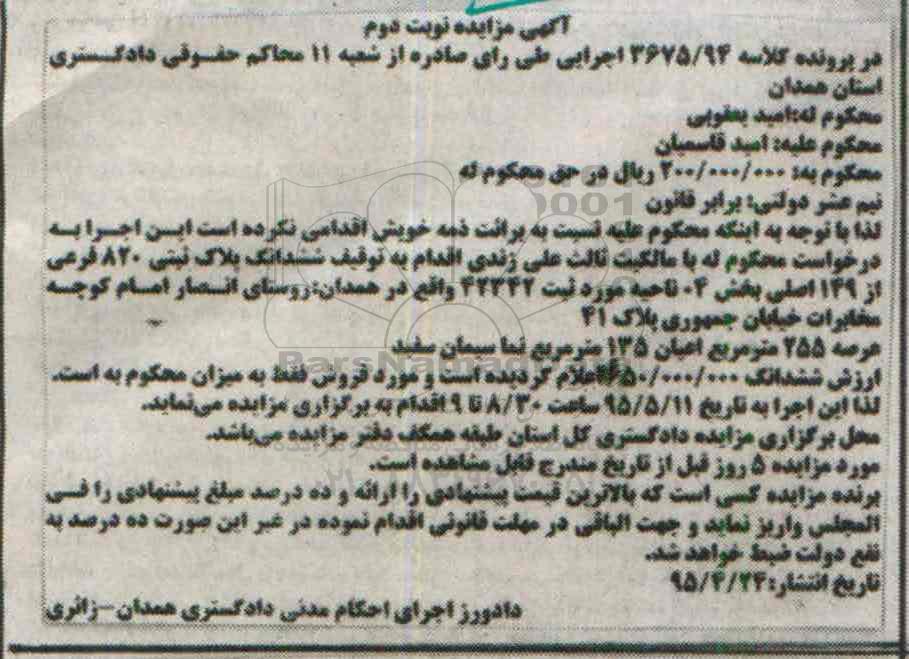 آگهی مزایده نوبت دوم
در پرونده کلاسه ۳۶۷۵/۹۴ اجرایی طی رای صادره از شعبه ۱۱ محاکم حقوقی دادگستری
استان همدان
محکوم له:امید یعقوبی
محکوم علیه: امید قاسمیان
محکوم به: ۲۰۰/۰۰۰/۰۰۰ ریال در حق محکوم له
نیم عشر دولتی: برابر قانون
لذا با توجه به اینکه محکوم علیه نسبت به برائت ذمه خویش اقدامی نکرده است ایـن اجـرا بـه
درخواست محکوم له با مالکیت ثالث علی زندی اقدام به توقیف ششدانگ پلاک ثبتی ۸۲۰ فرعی
از ۱۴۹ اصلی بخش ۰۴ ناحیه مورد ثبت ۴۲۳۴۲ واقع در همدان:روستای انـصار امـام کوچـه
مخابرات خیابان جمهوری پلاک ۴۱
عرصه ۲۵۵ مترمربع اعیان ۱۳۵ مترمربع نما سیمان سفید
ارزش ششدانگ ۵۰/۰۰۰/۰۰۰ اعلام گردیده است و مورد فروش فقط به میزان محکوم به است.
لذا این اجرا به تاریخ ۹۵/۵/۱۱ ساعت ۸/۳۰ تا ۹ اقدام به برگزاری مزایده می‌نماید.
محل برگزاری مزایده دادگستری کل استان طبقه همکف دفتر مزایده می‌باشد.
مورد مزایده ۵ روز قبل از تاریخ مندرج قابل مشاهده است.
برنده مزایده کسی است که بالاترین قیمت پیشنهادی را ارائه و ده درصد مبلغ پیشنهادی را فـی
المجلس واریز نماید و جهت الباقی در مهلت قانونی اقدام نموده در غیر این صورت ده درصد به
نفع دولت ضبط خواهد شد.
تاریخ انتشار:۹۵/۴/۲۴
دادورز اجرای احکام مدنی دادگستری همدان-زائری